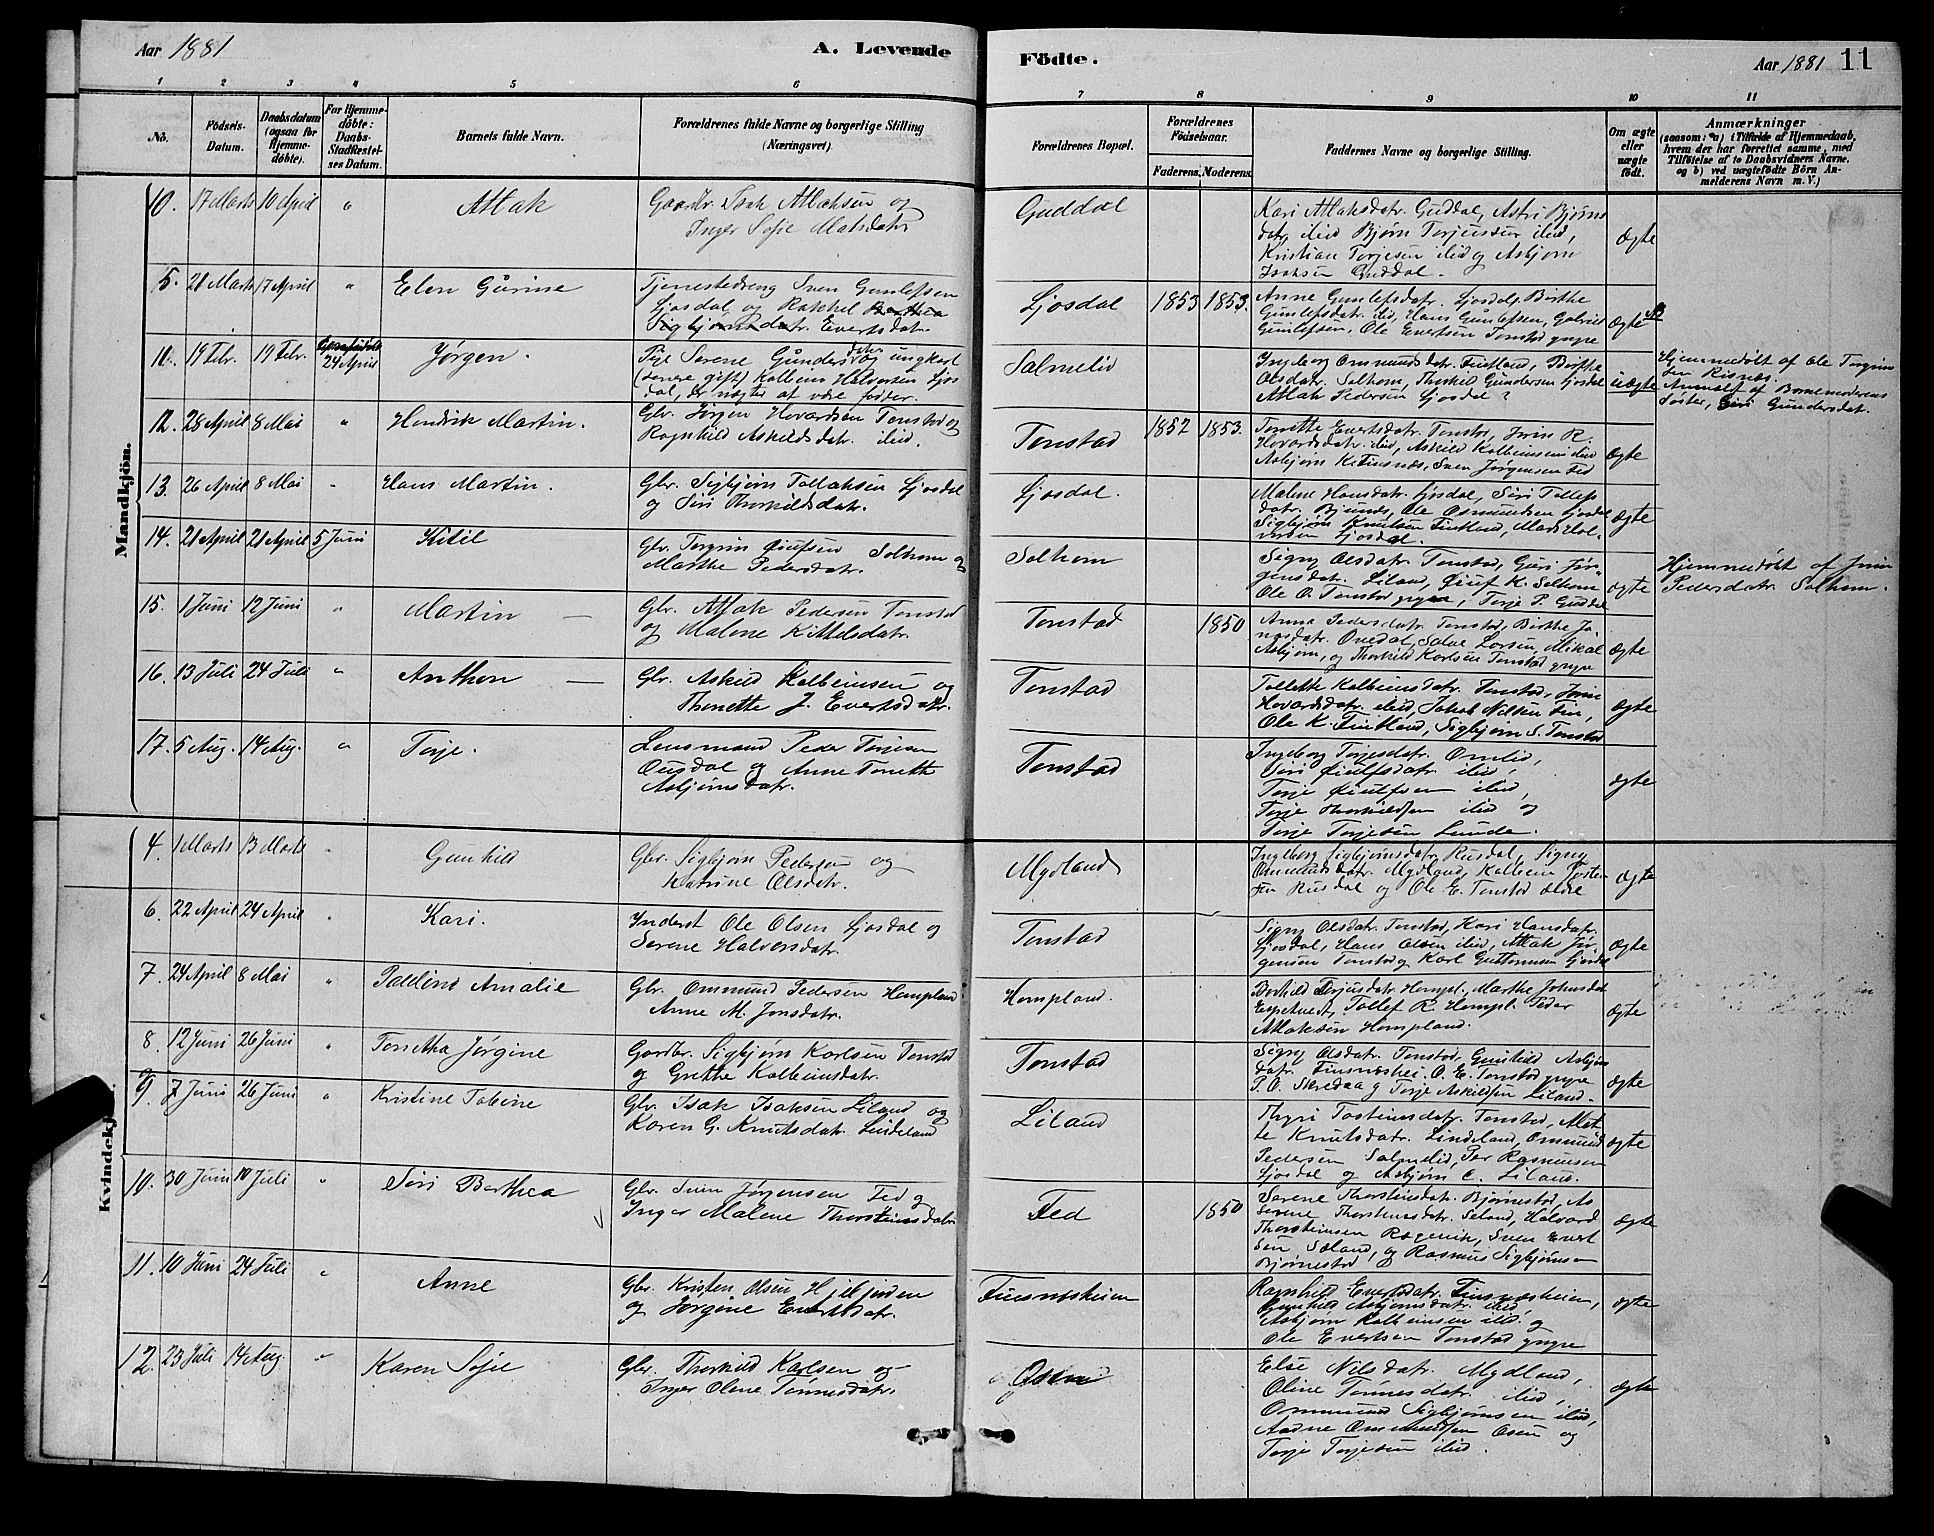 Aar 1881
A. Levende
Födte.
Aar 1881
11
1 2 3 4 5 6 7 8 9 10 11
No.
Födsels-Datum.
Daabsdatum (ogsaa for Hjemmedöbte).
For Hjemmedöbte: Daabs-Stadfæstelses Datum.
Barnets fulde Navn.
Forældrenes fulde Navne og borgerlige Stilling (Næringsvei).
Forældrenes Bopæl.
Forældrenes Födselsaar.
Faderens. Moderens.
Faddernes Navne og borgerlige Stilling.
Om ægte eller uægte födt.
Anmærkninger
(saasom: a) i Tilfælde af Hjemmedaab, hvem der har forrettet samme, med Tilföielse af to Daabsvidners Navne. og b) ved uægtefödte Börn Anmelderens Navn m. V.)
Mandkjön.
10. 17 Marts 10 April " Atlak
Gaardbr. Isak Atlaksen og
Inger Sofie Matsdatr.
Guddal
Kari Atlaksdatr. Guddal, Astri Bjørns
datr. ibid Bjørn Terjussen ibid,
Kristian Terjesen ibid og Asbjørn
Isaksen Guddal.
ægte
5. 28 Marts 17 April " Elen Gurine
Tjenestedreng Sven Gunlefsen
Ljosdal og Rakkel Berthea
Sigbjørnsdatr. Evertsdatr.
Ljosdal 1853 1853.
Anne Gunlefsdatr. Ljosdal, Birthe
Gunlefsdatr. ibid, Hans Gunlefsen, Gabriel
Gunlefsen, Ole Evertsen Tonstad yngre
ægte
11. 19 Febr. 19 Febr. 24 April Jørgen.
Pige Serene Gundersdatr og ungkarl
(senere gift) Kolbein Halvorsen Ljos
dal, der nægter at være fader.
Salmelid
Ingeborg Ommundsdatr. Fintland, Birthe
Olsdatr. Solhom, Thorkild Gundersen Ljosdal
Atlak Pedersen Ljosdal?
uægte
Hjemmedøbt af Ole Torgrim
sen Risnæs.
Anmeldt af Barnemoderens
Søster, Siri Gundersdatr.
12. 28 April 8 Mai " Hendrik Martin.
Gbr. Jørgen Hovardsen Tonstad og
Ragnhild Askildsdatr. ibid.
Tonstad 1852 1853.
Tonette Evertsdatr. Tonstad, Jorin R.
Hovardsdatr. ibid, Askild Kolbeinsen ibid
Asbjørn Ketilsnæs, Sven Jørgensen Fed
ægte
13. 26 April 8 Mai " Hans Martin.
Gbr. Sigbjørn Tollaksen Ljosdal
og Siri Thorkildsdatr.
Ljosdal.
Malene Hansdatr. Ljosdal, Siri Tollefs
datr. Bjunæs, Ole Osmundsen Ljosdal
Sigbjørn Knutsen Fintland, Mads Hal-
vorsen Ljosdal.
ægte
14. 21 April 21 April 5 Juni Kitil
Gbr. Torgrim Eiulfsen Solhom og
Marthe Pedersdatr.
Solhom
Signy Olsdatr. Tonstad, Guri Jør-
gensdatr. Liland, Eiulf K. Solhom
Ole O. Tonstad yngre, Terje P. Guddal
ægte
Hjemmedøbt af Jorin
Pedersdatr. Solhom.
15. 1 Juni 12 Juni " Martin
Gbr. Atlak Pedersen Tonstad
og Malene Kittelsdatr.
Tonstad 1850
Anna Pedersdatr. Tonstad, Birthe Jo-
nasdatr. Ousdal, Salve Larsen, Mikal
Asbjørn, og Thorkild Karlsen Tonstad yngre
ægte
16. 13 Juli 24 Juli " Anthon
Gbr. Askild Kolbeinsen og
Thonette J. Evertsdatr.
Tonstad
Tollette Kolbeinsdatr. Tonstad, Jorin
Hovardsdatr. ibid, Jakob Nilsen Fin,
Ole K. Fintland, Sigbjørn S. Tonstad
ægte
17. 5 Aug. 14 Aug. " Terje.
Lensmand Peder Terjesen
Ousdal og Anne Tonette
Asbjørnsdatr.
Tonstad
Ingeborg Terjesdatr. Omlid,
Siri Eiulfsdatr. ibid,
Terje Eiulfsen ibid,
Terje Thorkildsen ibid og
Terje Terjesen Lunde.
ægte
Kvindekj.
4. 1 Marts 13 Marts " Gunhild
Gbr. Sigbjørn Pedersen og
Katrine Olsdatr.
Mydland
Ingeborg Sigbjørnsdatr. Rusdal, Signy
Ommundsdatr. Mydland, Kolbein Tosten
sen Rusdal og Ole E. Tonstad ældre
ægte
6. 22 April 24 April " Kari.
Inderst Ole Olsen Ljosdal og
Serene Halvorsdatr.
Tonstad
Signy Olsdatr. Tonstad, Kari Hansdatr.
Ljosdal, Hans Olsen ibid, Atlak Jør-
gensen Tonstad og Karl Guttormsen Ljosdal
ægte
7. 24 April 8 Mai " Taldine Amalie
Gbr. Ommund Pedersen Hompland
Anne M. Jonsdatr.
Hompland.
Borhild Terjusdatr. Hompl. Marthe Johnsdatr
Espetveit, Tollef R. Hompl. Peder
Atlaksen Hompland.
ægte
8. 12 Juni 26 Juni " Tonetha Jørgine
Gardbr. Sigbjørn Karlsen Tonstad
og Grethe Kolbeinsdatr.
Tonstad
Signy Olsdatr. Tonstad, Gunhild Asbjørns
datr. Finsnæshei. O. E. Tonstad yngre
P. O. Skredaa og Terje Askildsen Liland.
ægte
9. 7 Juni 26 Juni " Kristine Tobine
Gbr. Isak Isaksen Liland og
Karen G. Knutsdatr. Lindeland
Liland
Thyri Tostensdatr. Tonstad, Alet-
te Knutsdatr. Lindeland, Ommund
Pedersen Salmelid, Per Rasmusen
Ljosdal og Asbjørn E. Liland.
ægte
10. 30 Juni 10 Juli " Siri Berthea
Gbr. Sven Jørgensen Fed og
Inger Malene Thorsteinsdatr
Fed 1850
Serene Thorsteinsdatr. Bjørnestad, As
Serene Thorsteinsdatr. Seland, Halvard
Thorsteinsen Røgevik, Sven Evert
sen Seland, og Rasmus Sigbjørnsen
Bjørnestad
ægte
11. 10 Juni 24 Juli " Anne
Gbr. Kristen Olsen
og Jørgine Evertsdatr.
Finsnæsheien
Ragnhild Evertsdatr. Finsnæsheien,
Gunhild Asbjørnsdatr. ibid,
Asbjørn Kolbeinsen ibid. og
Ole Evertsen Tonstad yngre
ægte
12. 23 Juli 14 Aug. " Karen Sofie
Gbr. Thorkild Karlsen og
Inger Olene Tønnesdatr.
Osen
Else Nilsdatr. Mydland,
Oline Tønnesdatr. ibid,
Ommund Sigbjørnsen ibid,
Aadne Ommundsen Osen og
Terje Terjesen ibid.
ægte